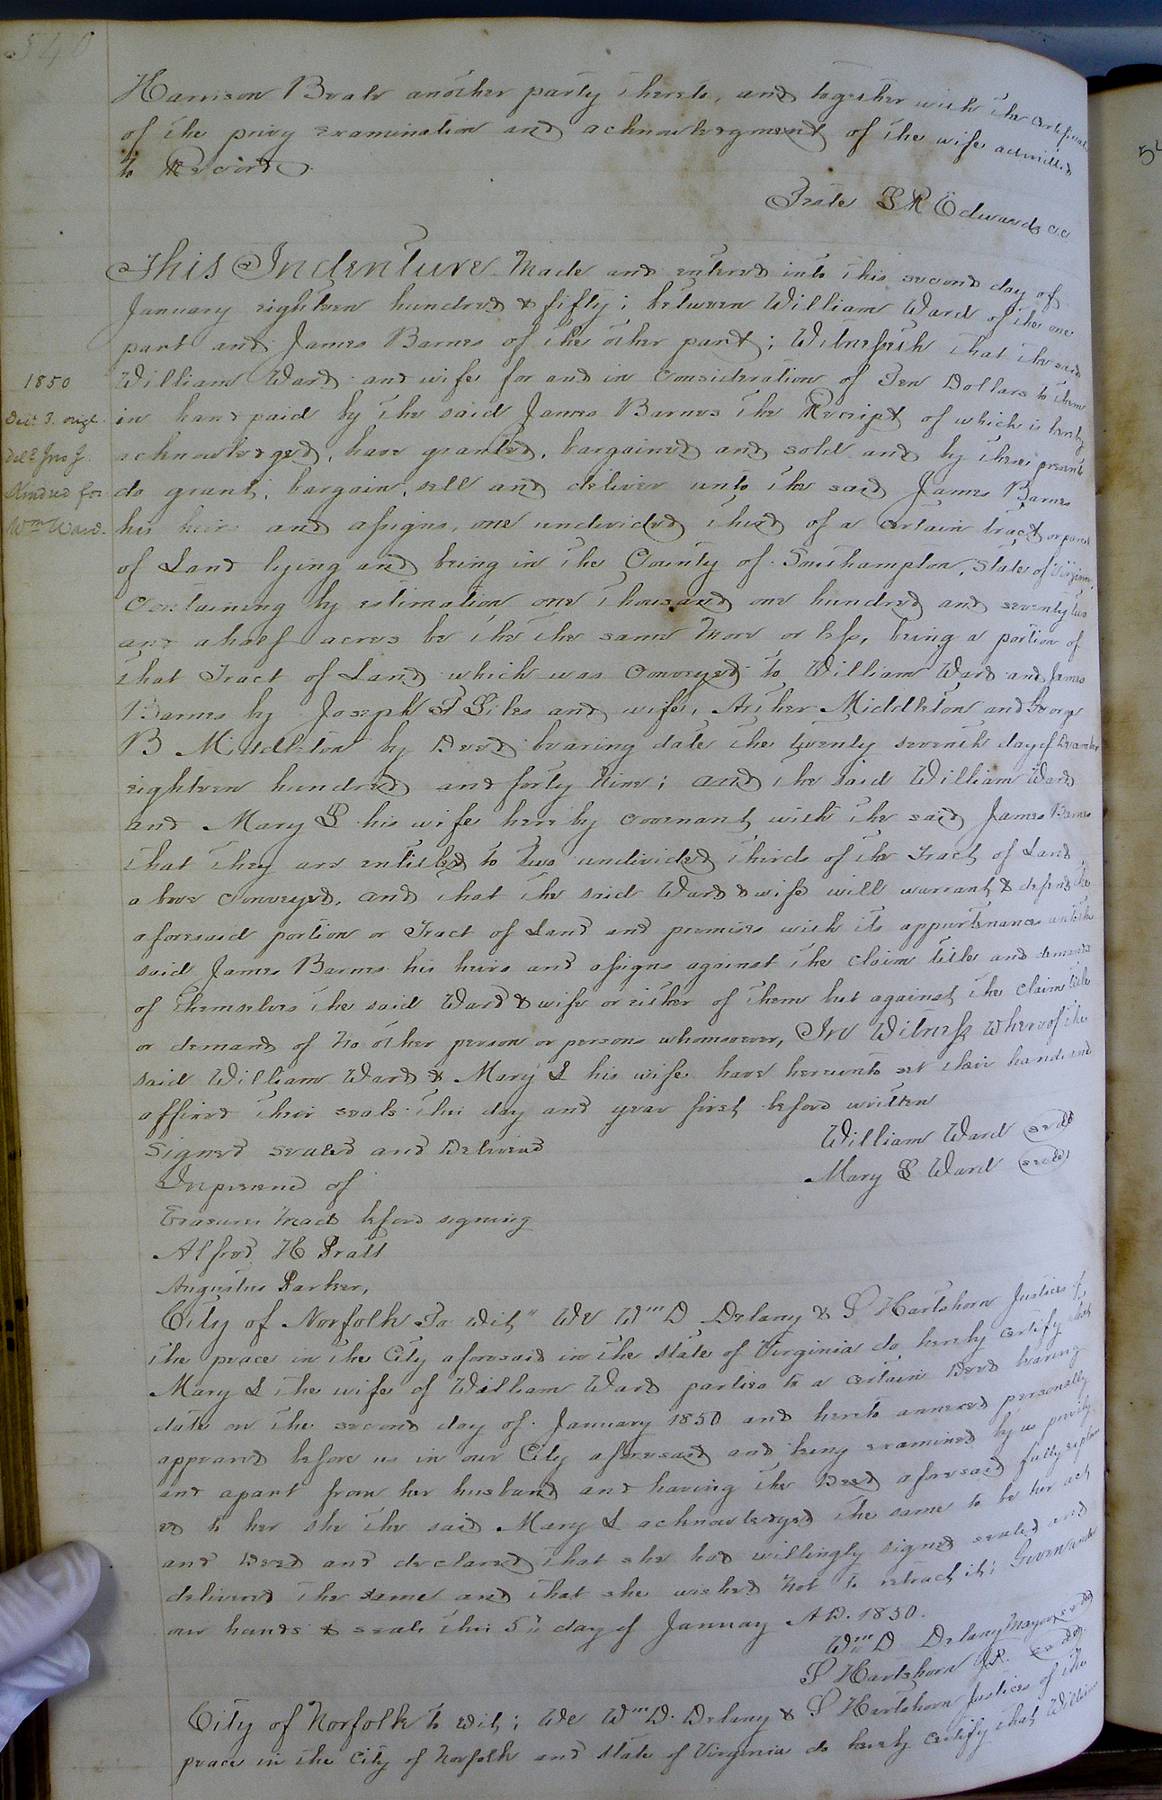 540
Harrison Beale another party thereto, and together with the certificate
of the privy examination and acknowledgment of the wife admitted
to Record.
Teste L R Edwards cc
This Indenture Made and entered into this second day of
January eighteen hundred & fifty; between William Ward of the one
part and James Barnes of the other part; Witnesseth that the said
William Ward and wife for and in consideration of Ten Dollars to them
in hand paid by the said James Barnes the Receipt of which is hereby
acknowledged, have granted, bargained and sold and by these presents
do grant, bargain, sell and deliver unto the said James Barnes
his heirs and assigns, one undivided third of a certain tract or parcel
of Land lying and being in the County of Southampton, State of Virginia,
Containing by estimation one thousand one hundred and seventy two
and a half acres be the the same more or less, being a portion of
that Tract of Land which was Conveyed to William Ward and James
Barnes by Joseph T Giles and wife, Archer Middleton and George
B Middleton by Deed bearing date the twenty seventh day of December
eighteen hundred and forty Nine; and the said William Ward
and Mary L his wife hereby covenant with the said James Barnes
that they are entitled to two undivided thirds of the Tract of Land
above conveyed, and that the said Ward & wife will warrant & defend the
aforesaid portion or Tract of Land and premises with its appurtenances unto the
said James Barnes his heirs and assigns against the claim title and demand
of themselves the said Ward & wife or either of them but against the claim title
or demand of No other person or persons whomsoever, In Witness whereof the
said William Ward & Mary L his wife have hereunto set their hands and
affixed their seals this day and year first before written
Signed sealed and Delivered
William Ward seal
In presence of
Mary L Ward seal
Erasures Made before signing
Alfred H Pratt
Augustus Parker,
City of Norfolk To Wit" We Wm D Delany & S Hartshorn Justices of
the peace in the City aforesaid in the State of Virginia do hereby certify that
Mary L the wife of William Ward parties to a certain Deed bearing
date on the second day of January 1850 and hereto annexed personally
appeared before us in our City aforesaid and being examined by us privily
and apart from her husband and having the Deed aforesaid fully explain
ed to her she the said Mary L acknowledged the same to be her act
and Deed and declared that she had willingly signed sealed and
delivered the same and that she wished Not to retract it; Given under
our hands & seals this 5th day of January A.D. 1850.
Wm D Delany Mayor seal
S Hartshorn J.P. seal
City of Norfolk to wit; We Wm D. Delany & S Hartshorn Justices of the
peace in the City of Norfolk and State of Virginia do hereby certify that William
1850
Dect 3. origl.
Deld Jno J.
Kindred for
Wm Ward.